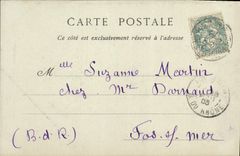 CARTE POSTALE
Ce côté est exclusivement réservé à l'adresse
Melle Suzanne Martin
chez Mr Darnaud
(B-d-R) Fos s/ mer
DU RHONE